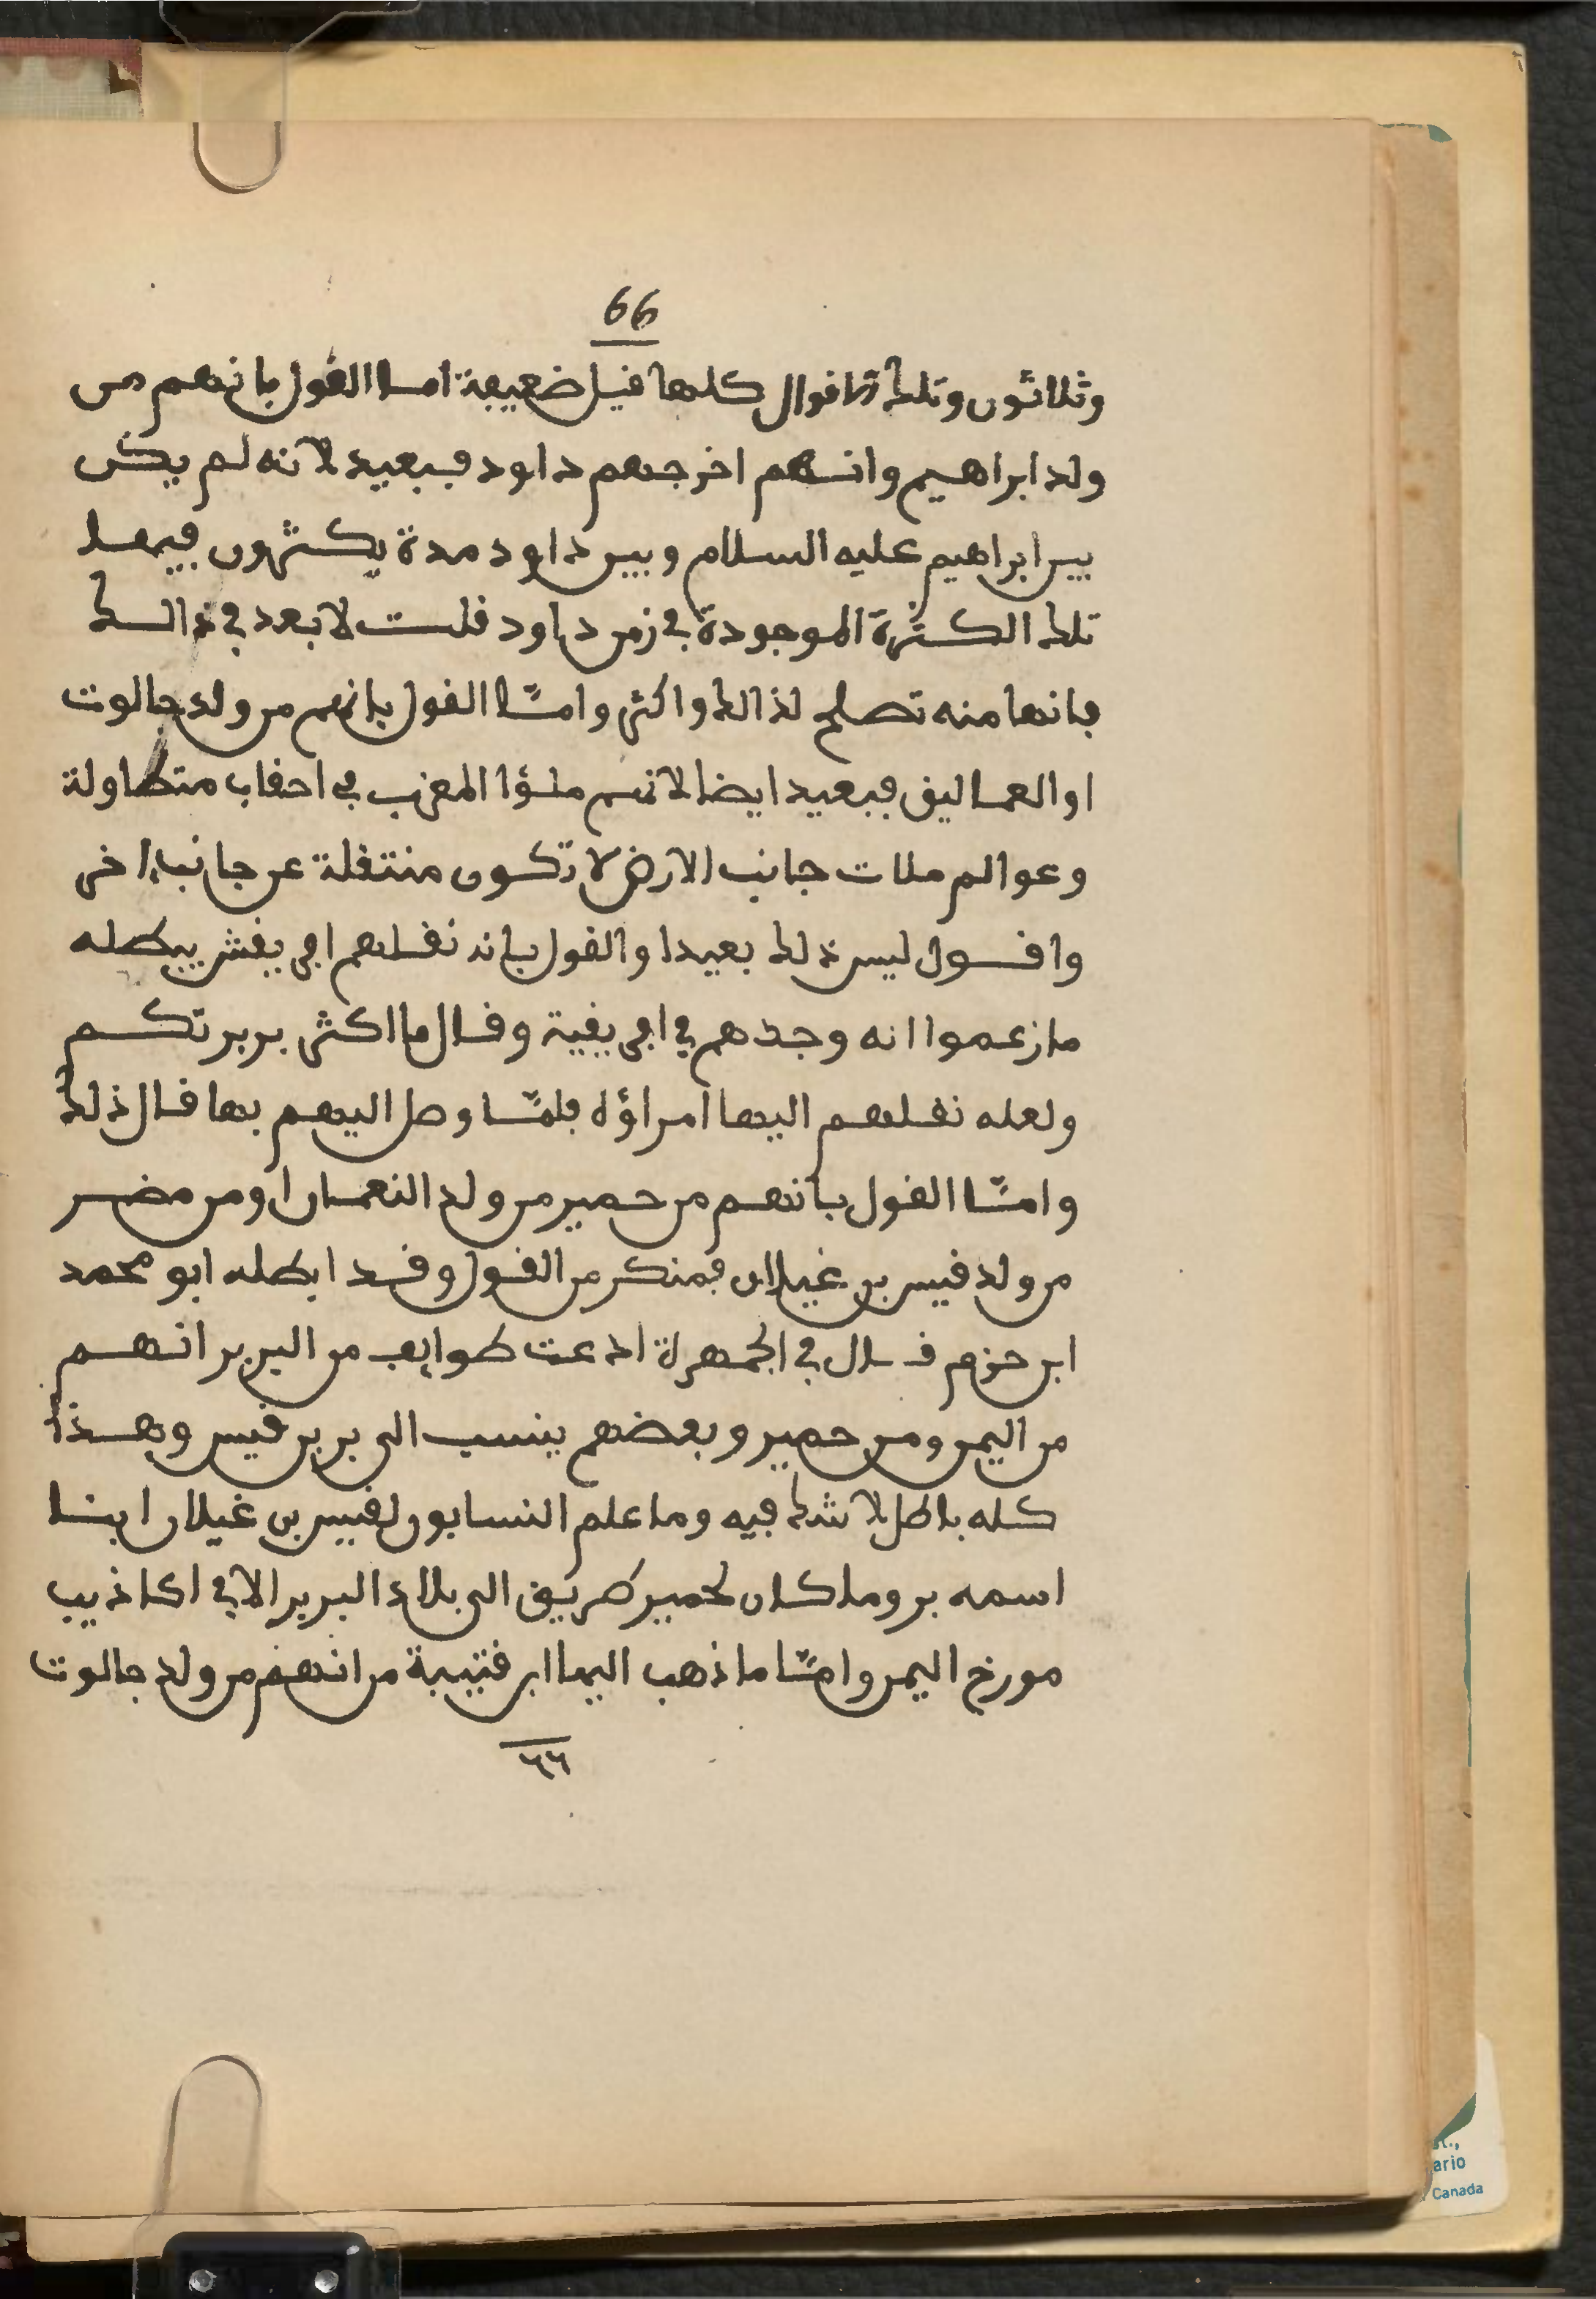 66
وثلاثون وتلك الاقوال كلها قيل ضعيفة اما القول بانهم من
ولد ابراهيم وانهم اخرجهم داود فبعيد لانه لم يكن
بين ابراهيم عليه السلام وبين داود مدة يكثرون فيها
تلك الكثرة الموجودة في زمن داود قلت لا بعد في ذالك
فانها منه تصلح لذالك واكثر وامّا القول بانهم من ولد جالوت
او العماليق فبعيد ايضا لانهم ملؤا المغرب في احقاب متطاولة
وعوالم ملات جانب الارض لا تكون منتقلة عن جانب اخر
واقول ليس ذلك بعيدا والقول بانه نقلهم افريقش يبطله
ما زعموا انه وجدهم في افريقية وقال ما اكثر بربرتكم
ولعله نقلهم اليها امراؤه فلمّا وصل اليهم بها قال ذلك
وامّا القول بانهم من حمير من ولد النعمان او من مضر
من ولد قيس بن غيلان فمنكر من القول وقد ابطله ابو محمد
ابن حزم قال في الجمهرة ادعت طوايف من البربر انهم
من اليمن ومن حمير وبعضهم ينسب الى بربر قيس وهذا
كله باطل لا شك فيه وما علم النسابون لقيس بن غيلان ابنا
اسمه بر وما كان لحمير طريق الى بلاد البربر الا في اكاذيب
مورخ اليمن وامّا ما ذهب اليها ابن قتيبة من انهم من ولد جالوت
٦٦
st.,
ario
Canada